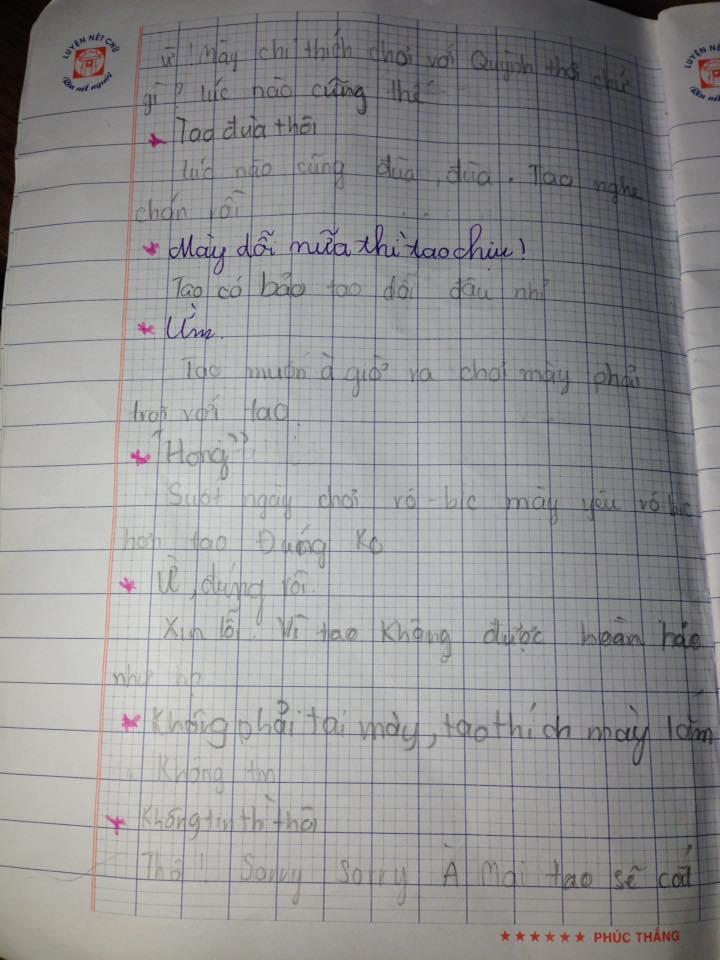 LUYỆN NÉT CHỮ
Rèn nết người
Ừ! Mày chỉ thích chơi với Quỳnh thôi chứ
gì, lúc nào cũng thế
Tao đùa thôi
Lúc nào cũng đùa, đùa. Tao nghe
chán rồi
Mày dỗi nữa thì tao chịu!
Tao có bảo tao dỗi đâu nhỉ
Ừm.
Tao muốn à giờ ra chơi mày phải
trơi với tao.
"Hong"
Suốt ngày chơi rô-bíc mày yêu rô-bíc
hơn tao Đướng Ko
Ừ, đúng rồi.
Xin lỗi. Vì tao không được hoàn hảo
như họ
Không phải tại mày, tao thích mày lắm
Không tin
Không tin thì thôi
Thôi! Sorry Sorry À Mai tao sẽ
★★★★★★ PHÚC THẮNG